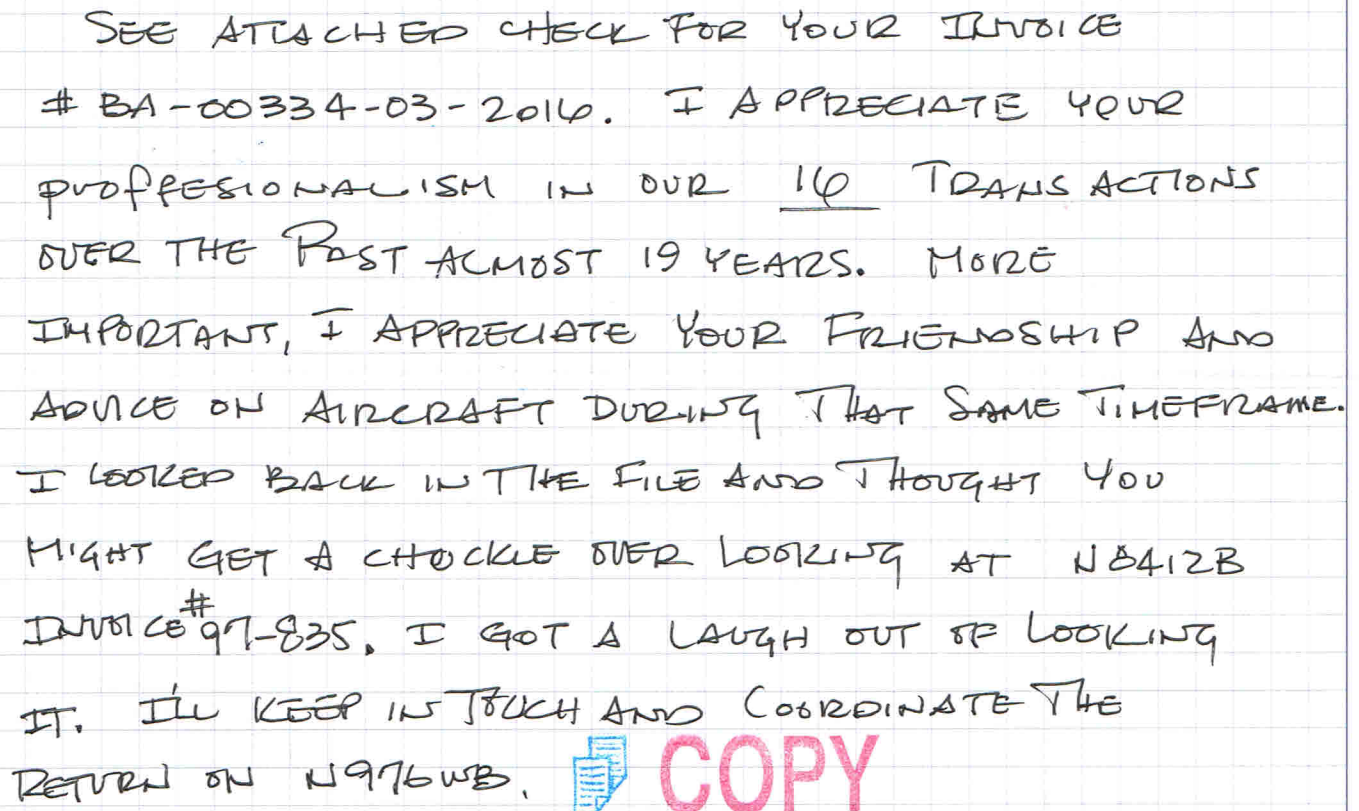 SEE ATTACHED CHECK FOR YOUR INVOICE
# BA-00334-03-2016. I APPRECIATE YOUR
PROFFESIONALISM IN OUR 16 TRANSACTIONS
OVER THE PAST ALMOST 19 YEARS. MORE
IMPORTANT, I APPRECIATE YOUR FRIENDSHIP AND
ADVICE ON AIRCRAFT DURING THAT SAME TIMEFRAME.
I LOOKED BACK IN THE FILE AND THOUGHT YOU
MIGHT GET A CHUCKLE OVER LOOKING AT N8412B
INVOICE #97-835. I GOT A LAUGH OUT OF LOOKING
IT. I'LL KEEP IN TOUCH AND COORDINATE THE
RETURN ON N976WB.
COPY